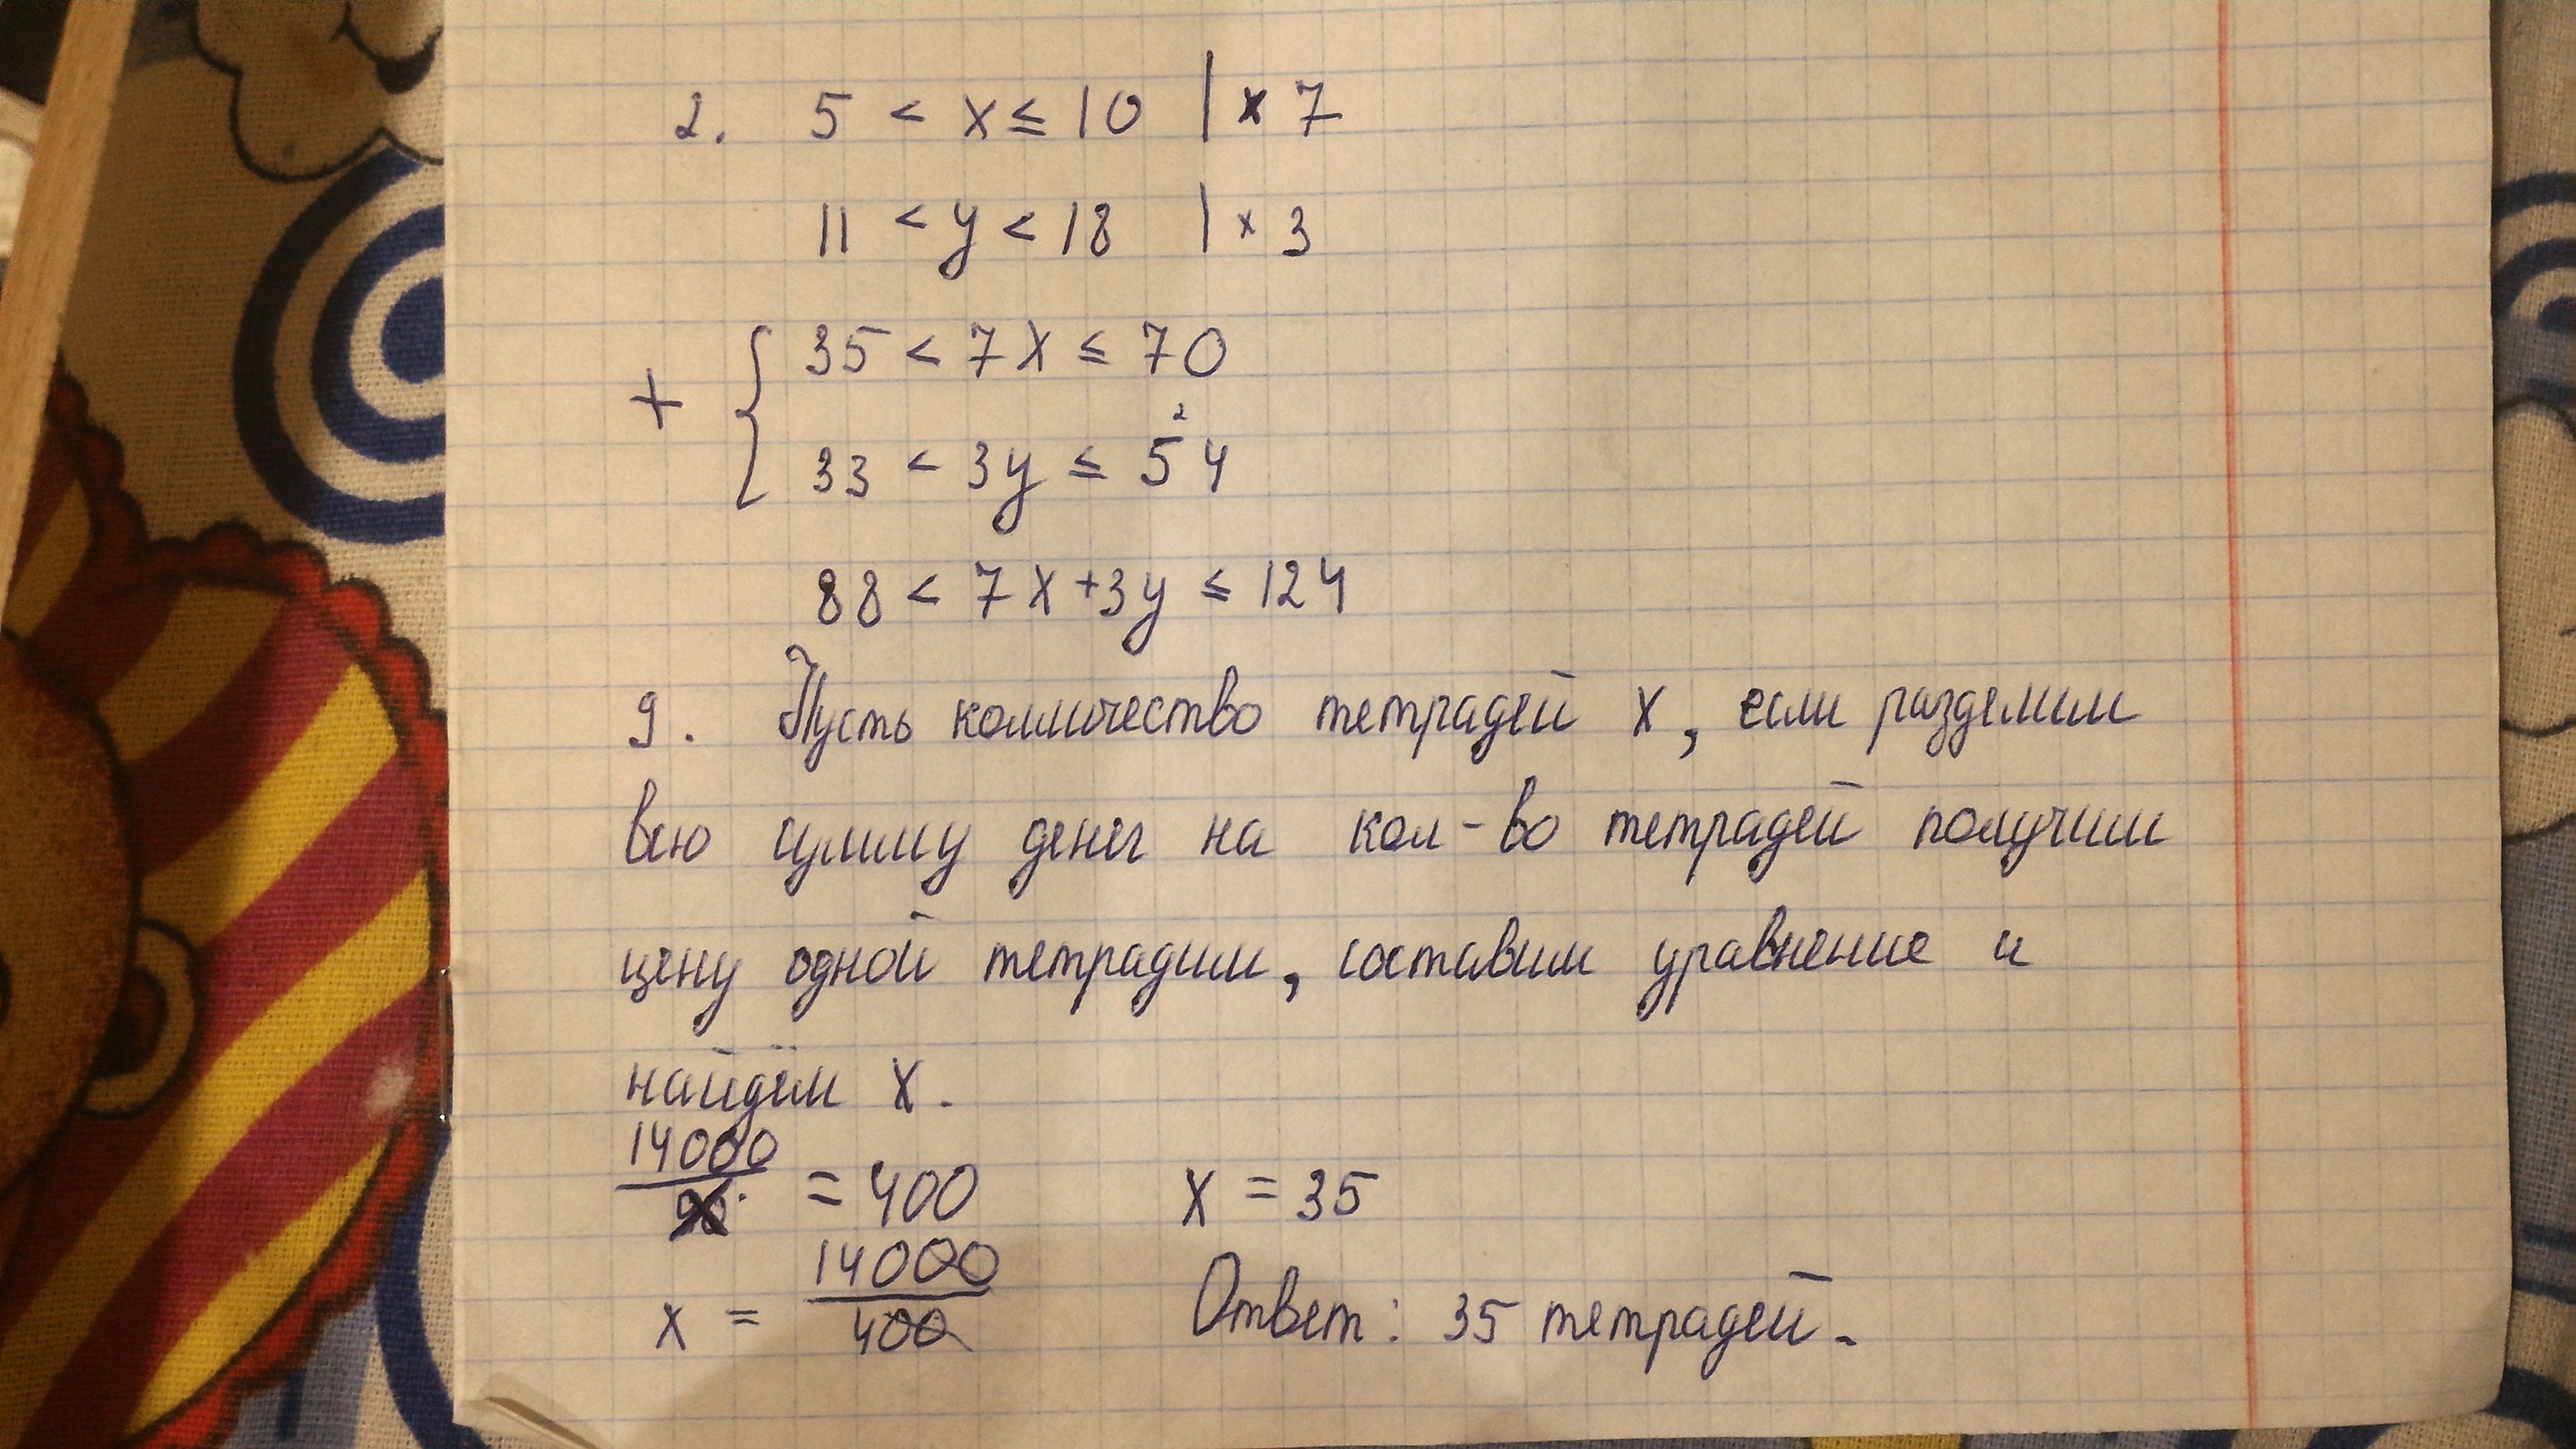 2. 5 < x ≤ 10 | × 7
11 < y < 18 | × 3
+ { 35 < 7x ≤ 70
2
33 < 3y ≤ 54
88 < 7x+3y ≤ 124
9. Пусть колличество тетрадей x, если разделим
всю сумму денег на кол-во тетрадей получим
цену одной тетрадии, составим уравнение и
найдём x.
14000
x = 400 x = 35
14000
x = 400 Ответ: 35 тетрадей.